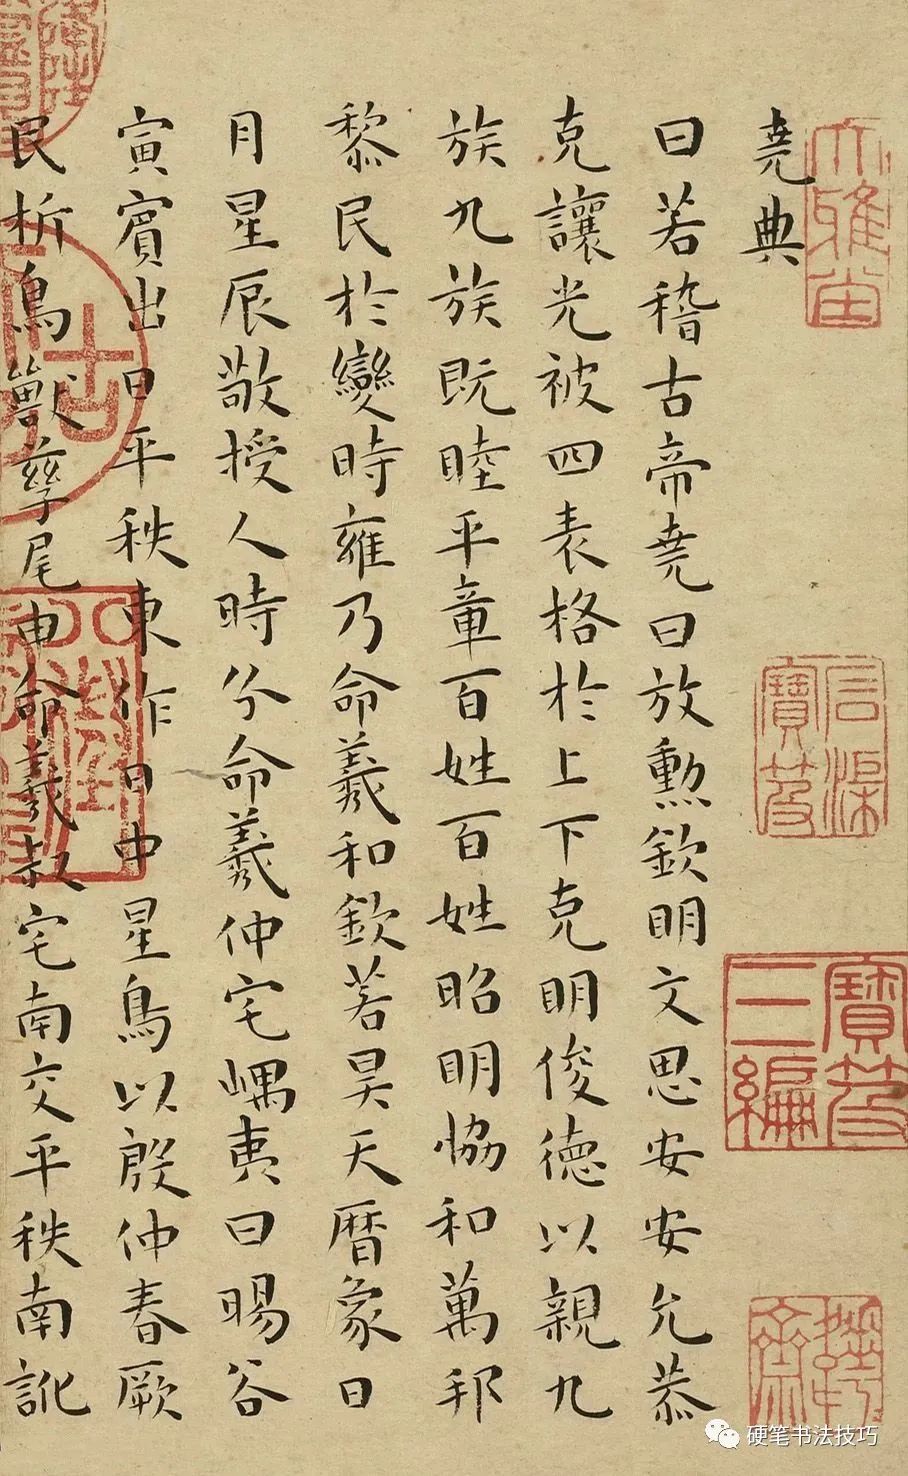 堯典
曰若稽古帝堯曰放勳欽明文思安安允恭
克讓光被四表格於上下克明俊德以親九
族九族既睦平章百姓百姓昭明恊和萬邦
黎民於變時雍乃命羲和欽若昊天曆象日
月星辰敬授人時分命羲仲宅嵎夷曰暘谷
寅賓出日平秩東作日中星鳥以殷仲春厥
民析鳥獸孳尾申命羲叔宅南交平秩南訛
石渠寶笈
寶笈三編
硬笔书法技巧